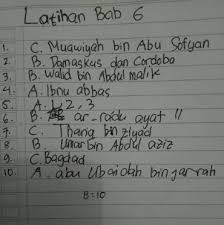 Latihan Bab 6
1. C. Muawiyah bin Abu Sofyan
2. B. Damaskus dan Cordoba
3. B. Walid bin Abdul malik
4. A. Ibnu abbas
5. A. 1, 2, 3
6. B. ar-radu ayat 11
7. C. Thariq bin ziyad
8. B. Umar bin Abdul aziz
9. C. Bagdad
10. A. abu Ubaidah bin jarrah
B=10